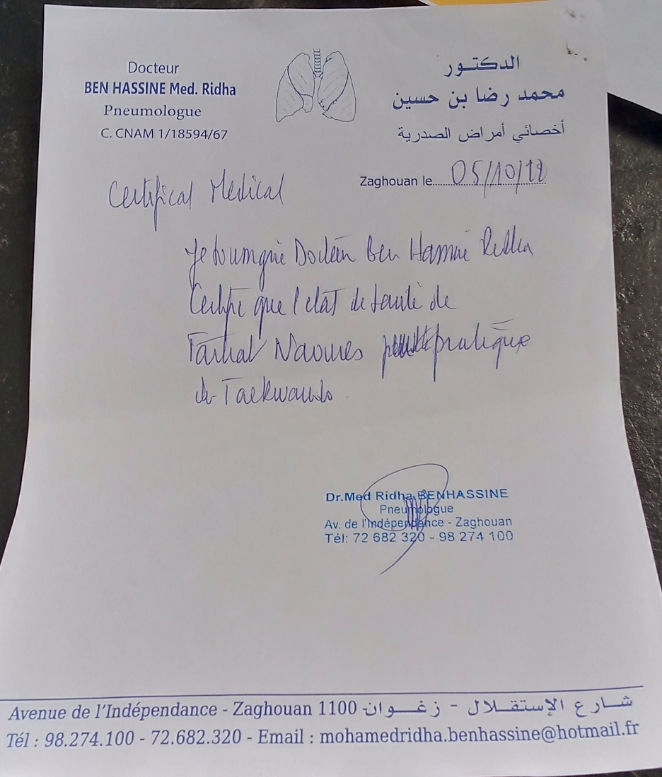 Docteur
BEN HASSINE Med. Ridha
Pneumologue
C. CNAM 1/18594/67
الدكتور
محمد رضا بن حسين
أخصائي أمراض الصدرية
Zaghouan le 05/10/
Certifical Medical
Je soussigné Docteur Ben Hassine Ridha
Certifie que l'état de santé de
pratique
de Taekwando
Dr.Med Ridha BENHASSINE
Pneumologue
Av. de l'Indépendance - Zaghouan
Tél: 72 682 320 - 98 274 100
Avenue de l'Indépendance - Zaghouan 1100 شارع الإستقلال - زغوان
Tél : 98.274.100 - 72.682.320 - Email : mohamedridha.benhassine@hotmail.fr